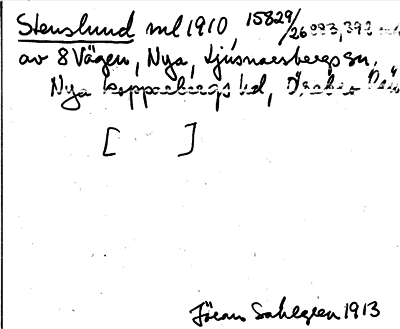 Stenslund ml 1910, 15829/26893,392
av 8 Vägen, Nya, Ljusnarsbergs sn,
Nya Kopparbergs hd, Örebro län
[ ]
Jöran Sahlgren 1913